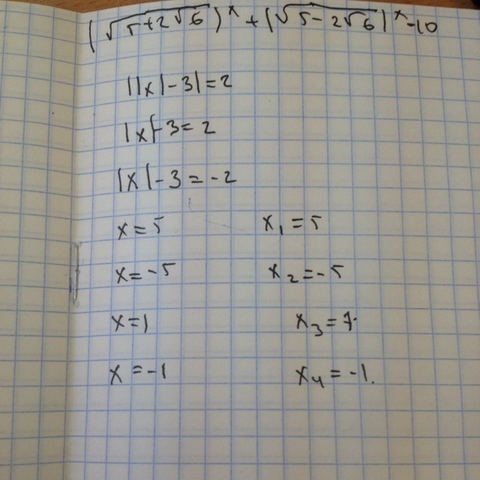 (√5+2√6)^x + (√5-2√6)^x - 10
||x|-3|=2
|x|-3=2
|x|-3=-2
x=5 x₁=5
x=-5 x₂=-5
x=1 x₃=7.
x=-1 x₄=-1.